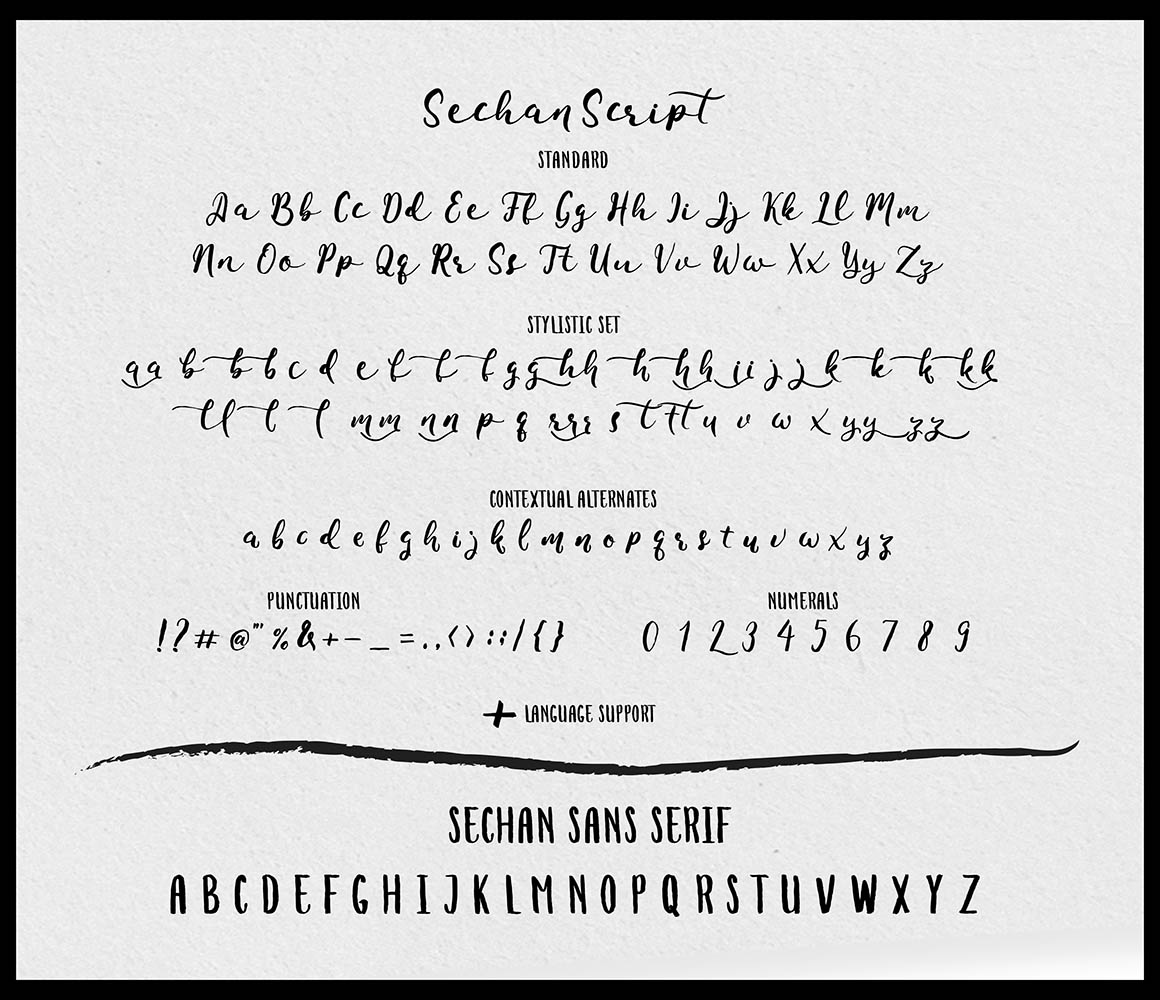 Sechan Script
STANDARD
Aa Bb Cc Dd Ee Ff Gg Hh Ii Jj Kk Ll Mm
Nn Oo Pp Qq Rr Ss Tt Uu Vv Ww Xx Yy Zz
STYLISTIC SET
a a b b b c d e f f f g g h h h h h i i j j k k k k k
l l l l m m n n p q r r r s t t t u v w x y y z z
CONTEXTUAL ALTERNATES
a b c d e f g h i j k l m n o p q r s t u v w x y z
PUNCTUATION
! ? # @ " ' % & + - _ = . , < > : ; / { }
NUMERALS
0 1 2 3 4 5 6 7 8 9
+ LANGUAGE SUPPORT
SECHAN SANS SERIF
A B C D E F G H I J K L M N O P Q R S T U V W X Y Z